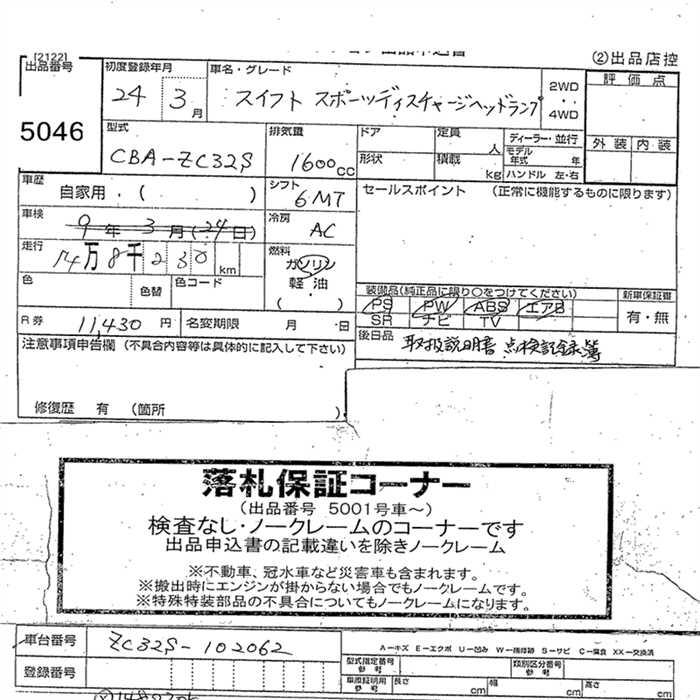 [2122]
②出品店控
出品番号 5046
初度登録年月 24 3月
車名・グレード スイフト スポーツディスチャージヘッドランプ
2WD
・・
4WD
評価点
外装 内装
型式 CBA-ZC32S
排気量 1600cc
ドア
形状
定員 人
積載 kg
ディーラー・並行
モデル年式 年
ハンドル 左・右
車歴 自家用 ( )
シフト 6MT
セールスポイント (正常に機能するものに限ります)
車検 9年3月(24日)
冷房 AC
走行 万8千230km
燃料 ガソリン
軽・油
( )
色 色替 色コード
装備品(純正品に限り○をつけてください)
PS PW ABS エアB
SR ナビ TV
新車保証書
有・無
R券 11,430円
名変期限 月 日
後日品 取扱説明書 点検記録簿
注意事項申告欄 (不具合内容等は具体的に記入して下さい)
修復歴 有 (箇所 )
落札保証コーナー
(出品番号 5001号車~)
検査なし・ノークレームのコーナーです
出品申込書の記載違いを除きノークレーム
※不動車、冠水車など災害車も含まれます。
※搬出時にエンジンが掛からない場合でもノークレームです。
※特殊特装部品の不具合についてもノークレームになります。
車台番号 ZC32S-102062
A-キズ E-エクボ U-凹み W-補修跡 S-サビ C-腐食 XX-交換済
登録番号
型式指定番号
参考
類別区分番号
参考
車庫証明用
参考
長さ cm
幅 cm
高さ cm